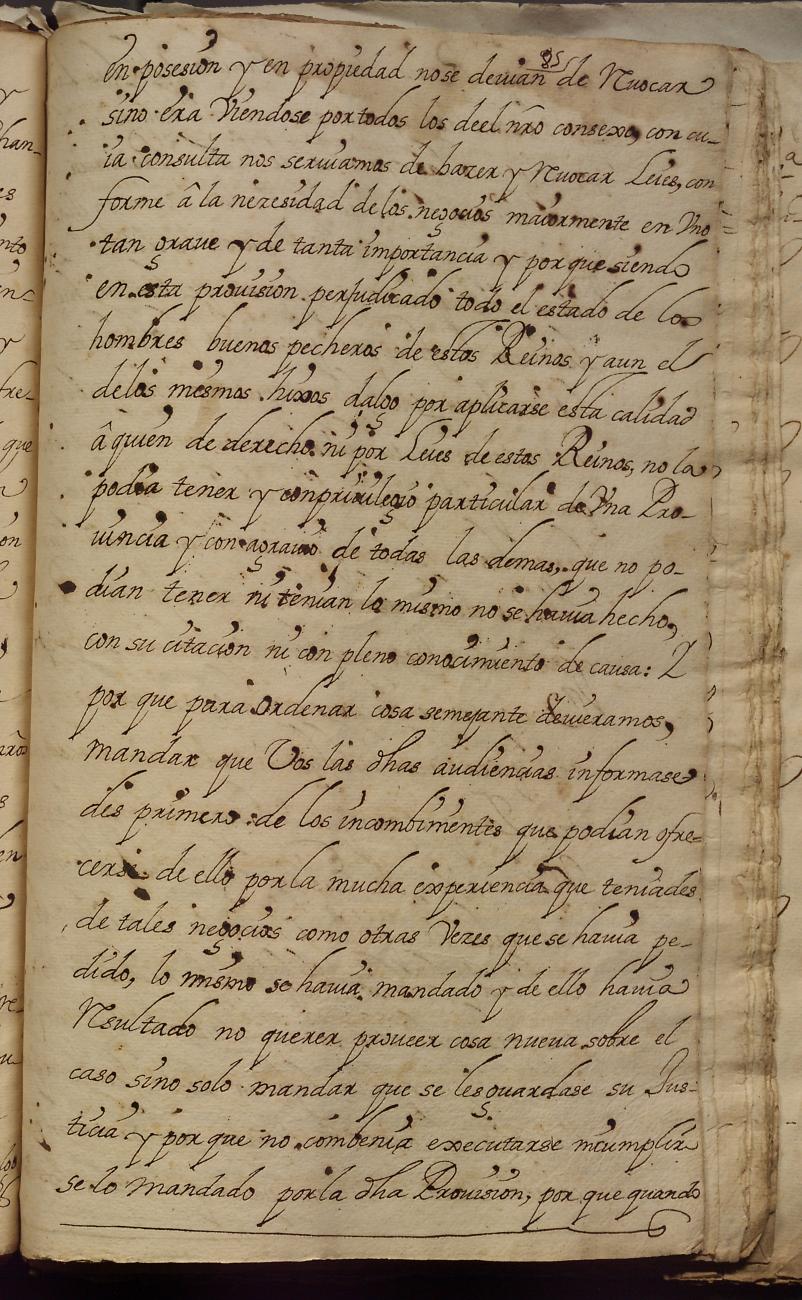 85
en posesion y en propiedad nose devian de Revocar
sino era Viendose por todos los deel nr̃o consexo, con cu-
ia consulta nos serviamos de hazer y Revocar Leies, con
forme â la nezesidad delos negocios maiormente en Uno
tan grave y de tanta importancia y por que siendo
en esta provision perjudicado todo el estado de los
hombres buenos pecheros de estos Reinos y aun el
delos mesmos hixos dalgo por aplicarse esta calidad
â quien de derecho ni por Leies de estos Reinos, no la
podia tener y con privilegio particular de Una Pro-
vincia y con agravio de todas las demas, que no po-
dian tener ni tenian lo mismo no se havia hecho,
con su citacion ni con pleno conocimiento de causa: Y
por que para Ordenar cosa semejante devieramos,
mandar que Vos las dhas audiencias informase
des primero de los incombinientes que podian ofre-
cerse de ello por la mucha experiencia que teniades
de tales negocios como otras Vezes que se havia pe-
dido, lo mismo se havia mandado y de ello havia
Resultado no querer proveer cosa nueva sobre el
caso sino solo mandar que se les guardase su Jus-
ticia y por que no combenia executarse ni cumplir
se lo mandado por la dha Provision, por que quando